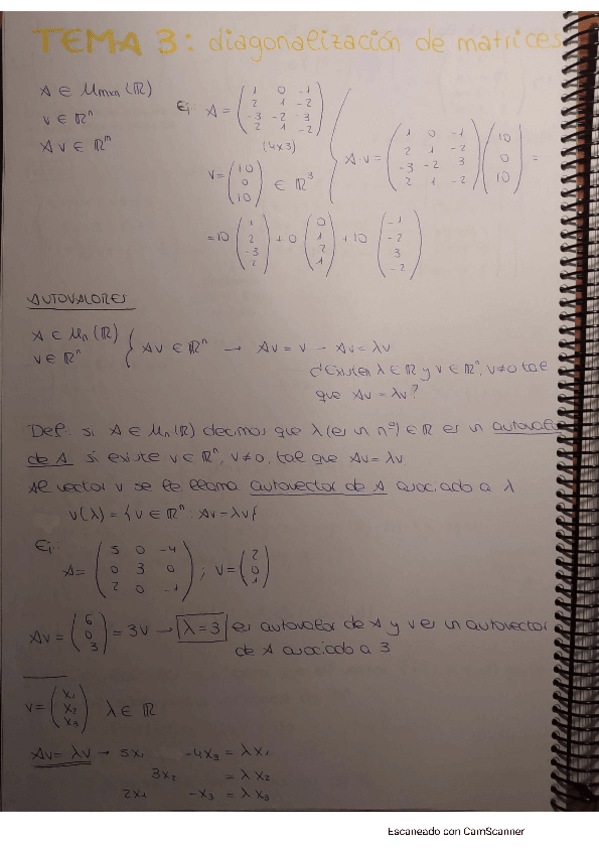 TEMA 3: diagonalización de matrices
A ∈ Mmxn(ℝ)
v ∈ ℝⁿ
Av ∈ ℝᵐ
Ej: A = ( 1 0 -1
2 1 -2
-3 -2 3
2 1 -2 )
(4x3)
v = ( 10
0
10 ) ∈ ℝ³
A·v = ( 1 0 -1
2 1 -2
-3 -2 3
2 1 -2 ) ( 10
0
10 ) =
= 10 ( 1
2
-3
2 ) + 0 ( 0
1
-2
1 ) + 10 ( -1
-2
3
-2 )
AUTOVALORES
A ∈ Mn(ℝ)
v ∈ ℝⁿ
{ Av ∈ ℝⁿ → Av = v → Av = λv
¿Existen λ ∈ ℝ y v ∈ ℝⁿ, v≠0 tal
que Av = λv?
Def: si A ∈ Mn(ℝ) decimos que λ (es un nº) ∈ ℝ es un autovalor
de A si existe v ∈ ℝⁿ, v≠0, tal que Av = λv
Al vector v se le llama autovector de A asociado a λ
V(λ) = {v ∈ ℝⁿ : Av = λv}
Ej:
A = ( 5 0 -4
0 3 0
2 0 -1 ) ; v = ( 2
0
1 )
Av = ( 6
0
3 ) = 3v → λ = 3 es autovalor de A y v es un autovector
de A asociado a 3
v = ( x₁
x₂
x₃ ) λ ∈ ℝ
Av = λv → 5x₁ -4x₃ = λx₁
3x₂ = λx₂
2x₁ -x₃ = λx₃
Escaneado con CamScanner